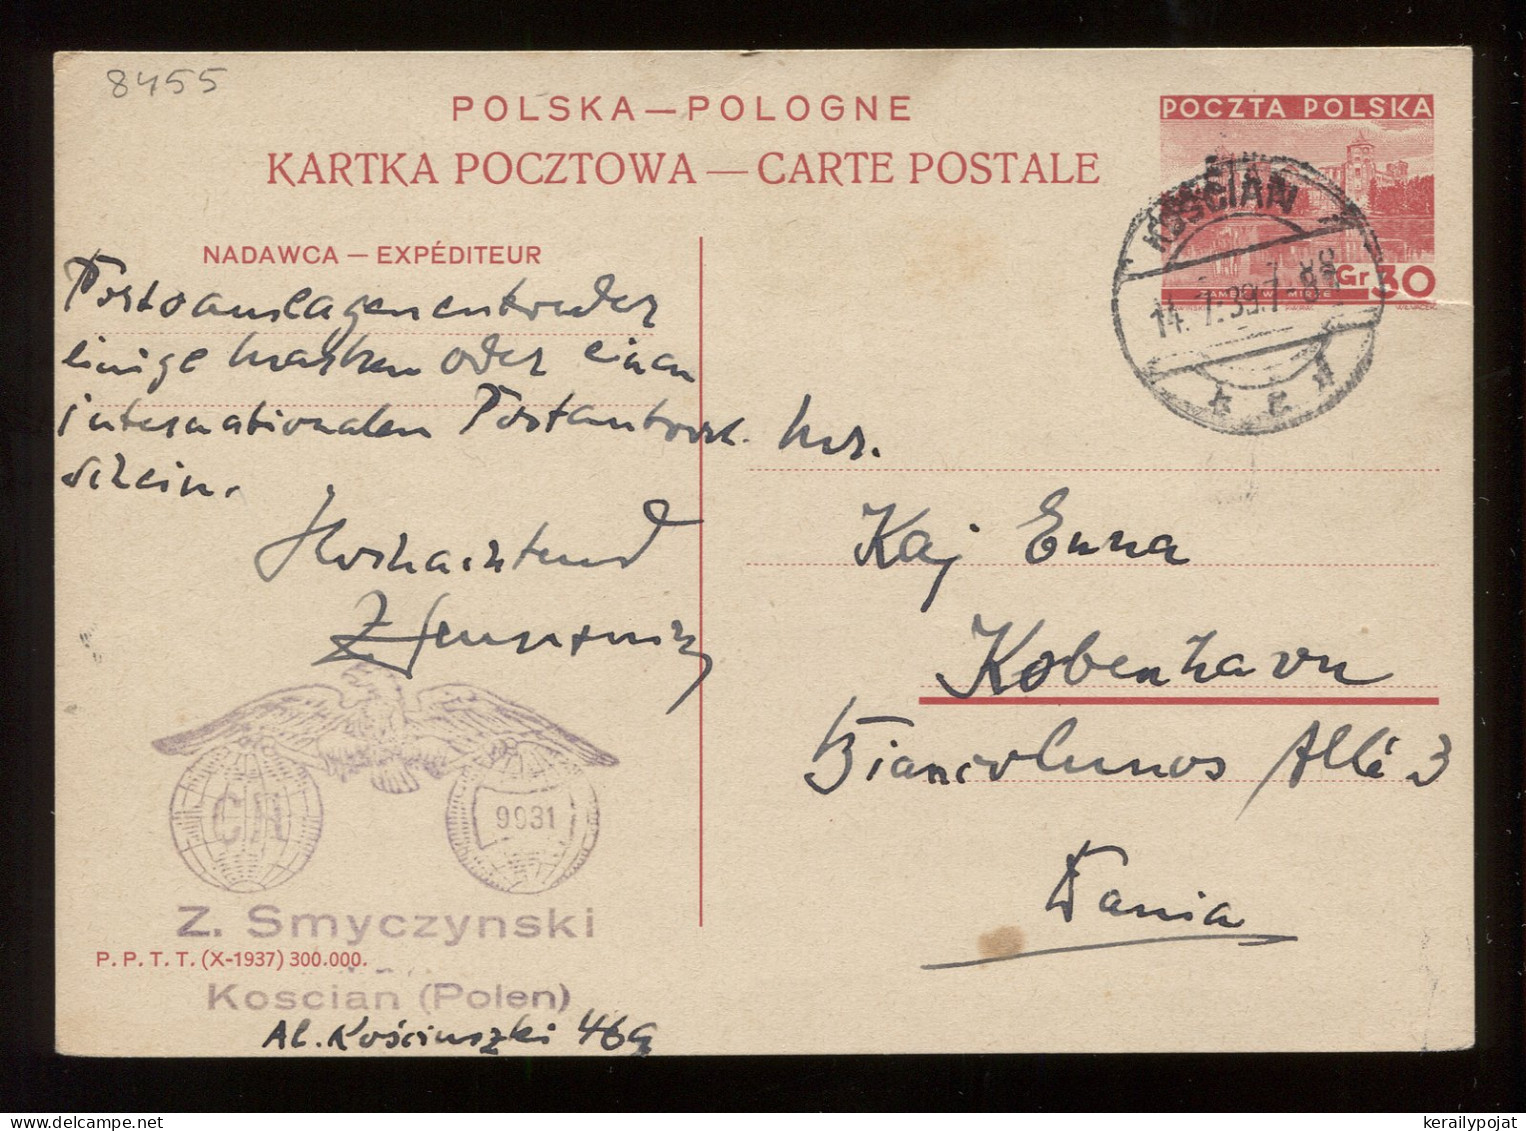 8455
POLSKA — POLOGNE
KARTKA POCZTOWA — CARTE POSTALE
POCZTA POLSKA
Gr 30
KOŚCIAN
14. 7. 39. 7-8
NADAWCA — EXPÉDITEUR
Portoauslagen entweder
einige Marken oder einen
internationalen Postantwort-
schein.
Hochachtend
Z. Smyczynski
Hr.
Kaj Enna
Kobenhavn
Biancolunos Allé 3
Dania
9931
Z. Smyczynski
P. P. T. T. (X-1937) 300.000.
Koscian (Polen)
Al. Kościuszki 46a
kerailypojat